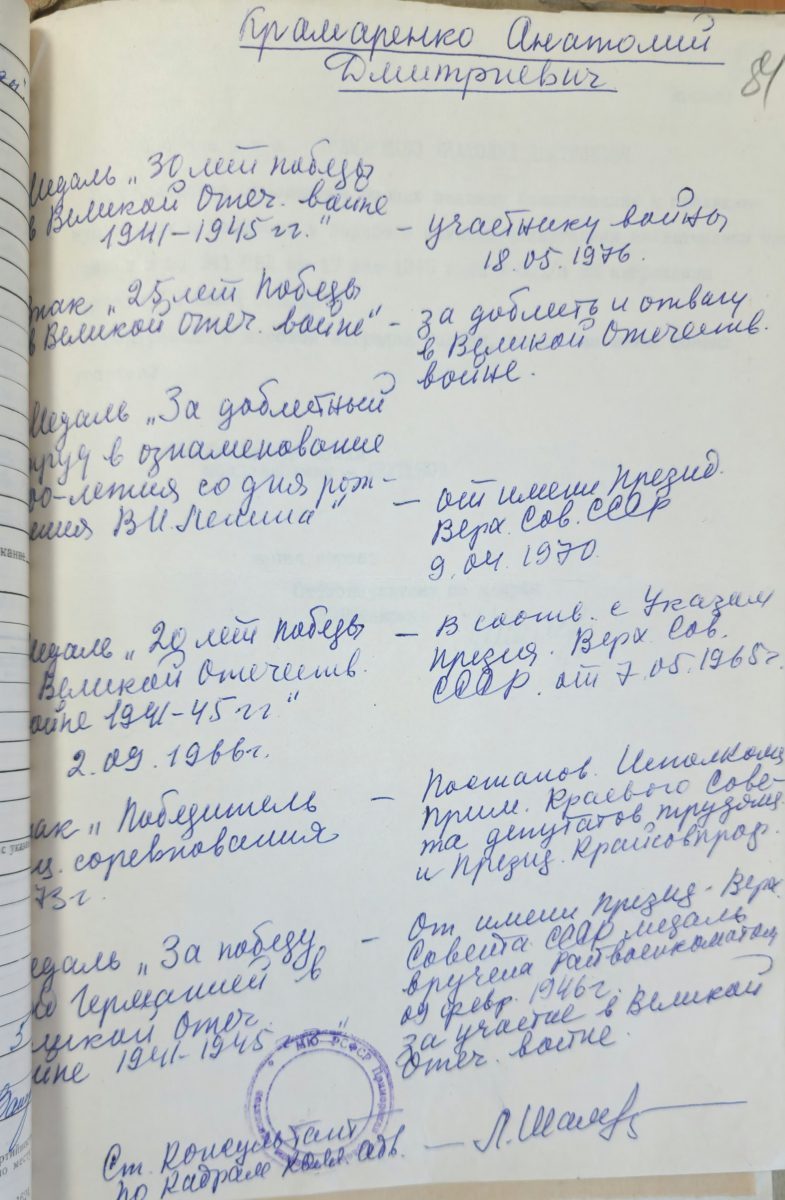 Крамаренко Анатолий
Дмитриевич
84
Медаль „30 лет победы
в Великой Отеч. войне
1941–1945 гг."
– участнику войны
18.05.1976.
Знак „25 лет Победы
в Великой Отеч. войне"
– за доблесть и отвагу
в Великой Отечеств.
войне.
Медаль „За доблестный
труд в ознаменование
00-летия со дня рож-
ения В.И. Ленина"
– от имени Презид.
Верх. Сов. СССР
9.04.1970.
медаль „20 лет победы
Великой Отечеств.
ойне 1941–45 гг."
2.09.1966г.
– В соотв. с Указом
Презид. Верх. Сов.
СССР от 7.05.1965г.
нак „Победитель
ц. соревнования
73г.
– Постанов. Исполкома
Прим. Краевого Сове-
та депутатов трудящ.
и Презид. Крайсовпроф.
едаль „За победу
Германией в
ликой Отеч.
йне 1941–1945"
– От имени Презид. Верх.
Совета СССР медаль
вручена Райвоенкоматом
09 февр. 1946г.
за участие в Великой
Отеч. войне.
МЮ РСФСР
Ст. консультант
по кадрам колл. адв. –